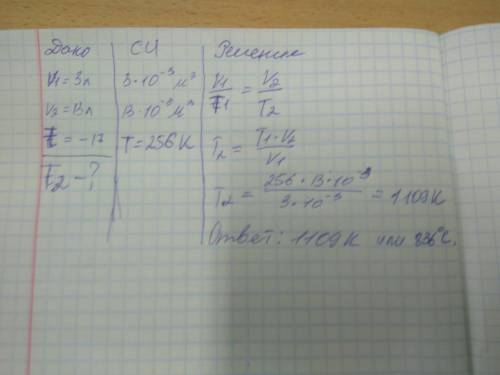 Дано
V1=3л
V2=13л
t=-17
T2-?
СИ
3·10⁻³ м³
13·10⁻³ м³
T=256К
Решение
V1/T1 = V2/T2
T2 = T1·V2/V1
T2 = 256·13·10⁻³/3·10⁻³ = 1109К
Ответ: 1109К или 836°С.